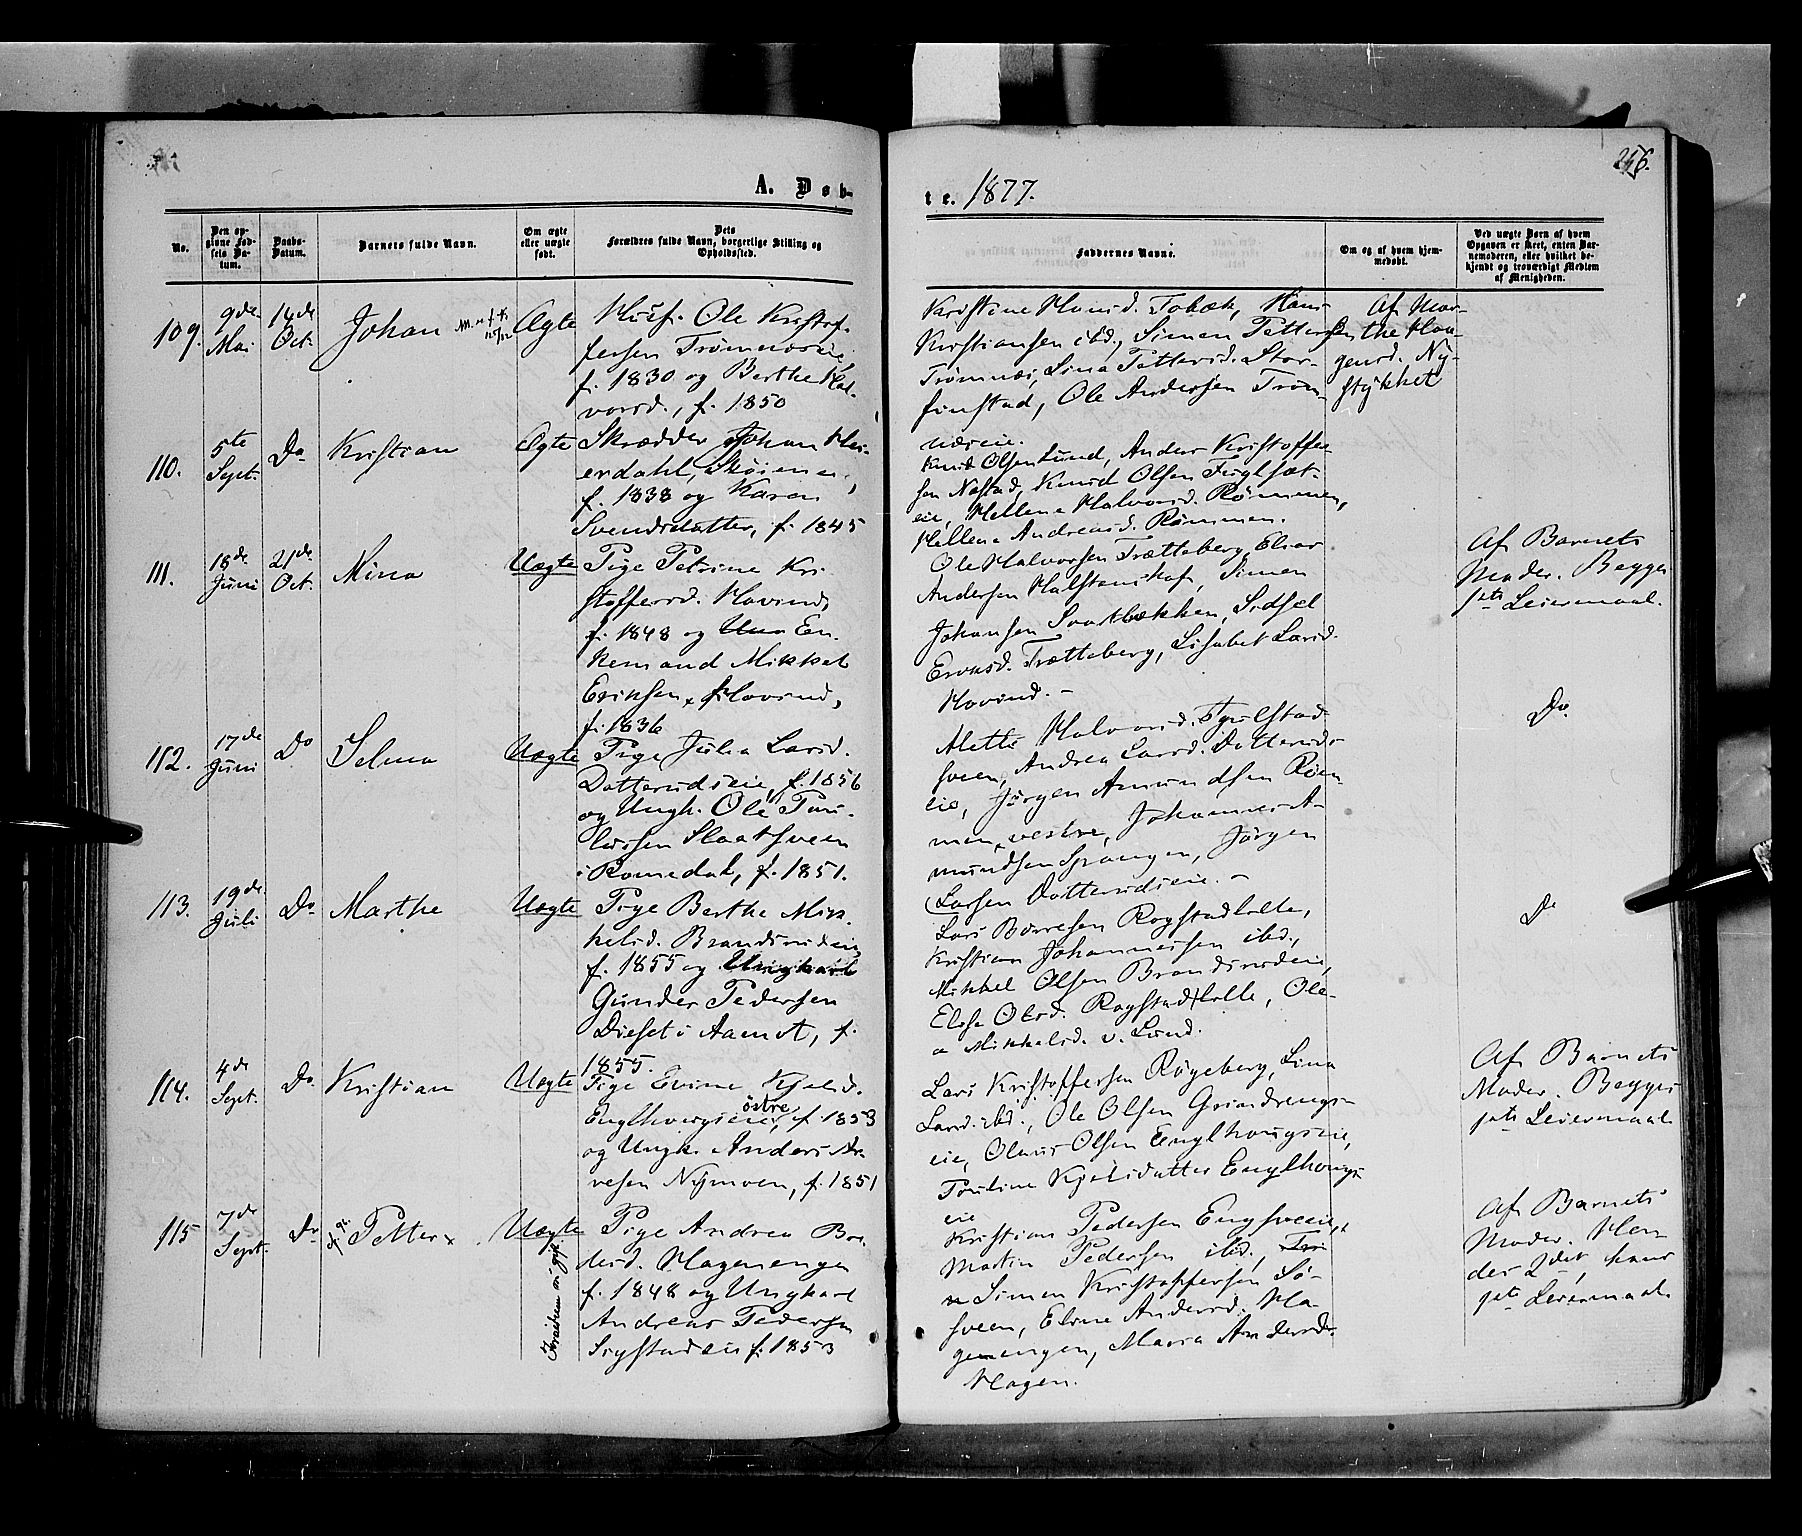 A. Døb-
te. 1877.
256.
No.
Den op-
givne Fød-
sels Da-
tum.
Daabs-
Datum.
Barnets fulde Navn.
Om ægte
eller uægte
født.
Dets
Forældres fulde Navn, borgerlige Stilling og
Opholdssted.
Faddernes Navne.
Om og af hvem hjem-
medøbt.
Ved uægte Børn af hvem
Opgaven er skeet, enten Bar-
nemoderen, eller hvilket be-
kjendt og troværdigt Medlem
af Menigheden.
109.
9de
Mai
14de
Oct.
Johan
Ægte
Husf. Ole Kristof-
fersen Trømnæseie,
f. 1830 og Berthe Hal-
vorsd., f. 1850
Kristine Hansd. Tobæk, Hans
Kristiansen ibd., Simen Pettersen
Trømnæs, Lina Pettersd. Stor-
finstad, Ole Andersen Trøm-
næseie.
Af Mar-
the Haa-
gensd. Ny-
stykket
110.
5te
Sept.
Do
Kristian
Ægte
Skrædder Johan Hei-
erdahl, Skøien,
f. 1838 og Karen
Svendsdatter, f. 1845
Knud Olsen Lund, Anders Kristoffer-
sen Næstad, Knud Olsen Fuglsæt-
eie, Hellene Halvorsd. Rømmen,
Hellene Andreasd. Rømmen.
111.
18de
Juni
21de
Oct.
Mina
Uægte
Pige Petrine Kri-
stoffersd. Hovind,
f. 1848 og En-
kemand Mikkel
Eriksen Hovind,
f. 1836
Ole Halvorsen Trætteberg, Elias
Andersen Halstenshof, Simen
Johansen Svartbækken, Sidsel
Evensd. Trætteberg, Lisabet Larsd.
Hovind. -
Af Barnets
Moder. Begges
1ste Leiermaal.
112.
17de
Juni
Do
Selma
Uægte
Pige Julia Larsd.
Dotterudseie, f. 1856
og Ungk. Ole Pau-
lussen Slaatsveen
i Romedal, f. 1851.
Alette Halvorsd. Fjulstad-
sveen, Andrea Larsd. Dotteruds-
eie, Jørgen Amundsen Røm-
men, vestre, Johannes A-
mundsen Sprangen, Jørgen
Larsen Dotterudseie. -
Do
113.
19de
Juli
Do
Marthe
Uægte
Pige Berthe Mik-
kelsd. Brandsrudeie,
f. 1855 og Ungkarl
Gunder Pedersen
Dieset i Aamot, f.
1855.
Lars Børresen Rogstadlille,
Kristian Johannessen ibd.,
Mikkel Olsen Brandsrudeie,
Elise Olsd. Rogstadlille, Ole-
a Mikkelsd. v. Lund.
Do
114.
4de
Sept.
Do
Kristian
Uægte
Pige Evine Kjelsd.
Englhaugseie, østre, f. 1853
og Ungk. Anders Ar-
vesen Nymoen, f. 1851
Lars Kristoffersen Røgeberg, Lina
Larsd. ibd., Ole Olsen Grindrengs-
eie, Olaus Olsen Englhaugseie,
Pouline Kjelsdatter Englhaugs-
eie
Af Barnets
Moder. Begges
1ste Leiermaal
115
7de
Sept.
Do
Petter
Uægte
Forældrene nu gift
Pige Andrea Bre-
desd. Hagenengen
f. 1848 og Ungkarl
Andreas Pedersen
Sigstadeie f. 1853
Kristian Pedersen Engsveen,
Martin Pedersen ibd.,
Simen Kristoffersen Sø-
sveen, Eline Andersd. Ha-
genengen, Maria Andersd.
Hagen.
Af Barnets
Moder. Hen-
des 2det, hans
1ste Leiermaal.